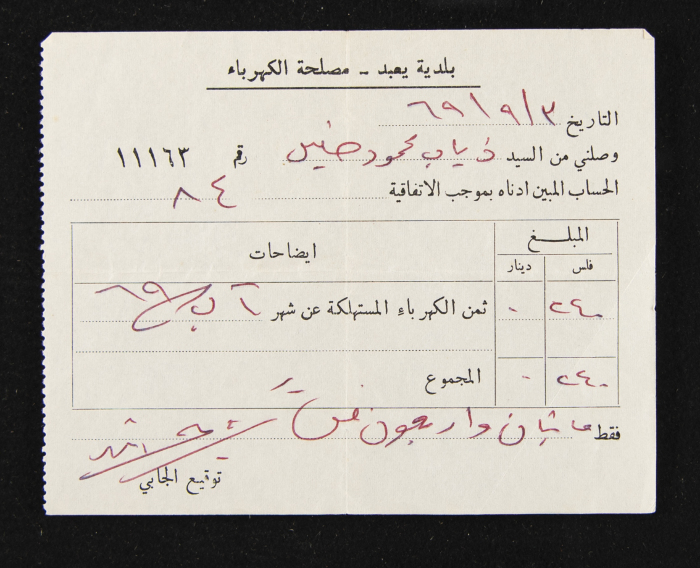 بلدية يعبد - مصلحة الكهرباء
التاريخ ٦٩/٩/٣
وصلني من السيد ذياب محمود رقم ١١١٦٣
الحساب المبين ادناه بموجب الاتفاقية ٨٤
المبلـــغ ايضاحات
فلس دينار
٢٤٠ ٠ ثمن الكهرباء المستهلكة عن شهر آب ٦٩
٢٤٠ ٠ المجموع
فقط مائتان واربعون فلس
توقيع الجابي